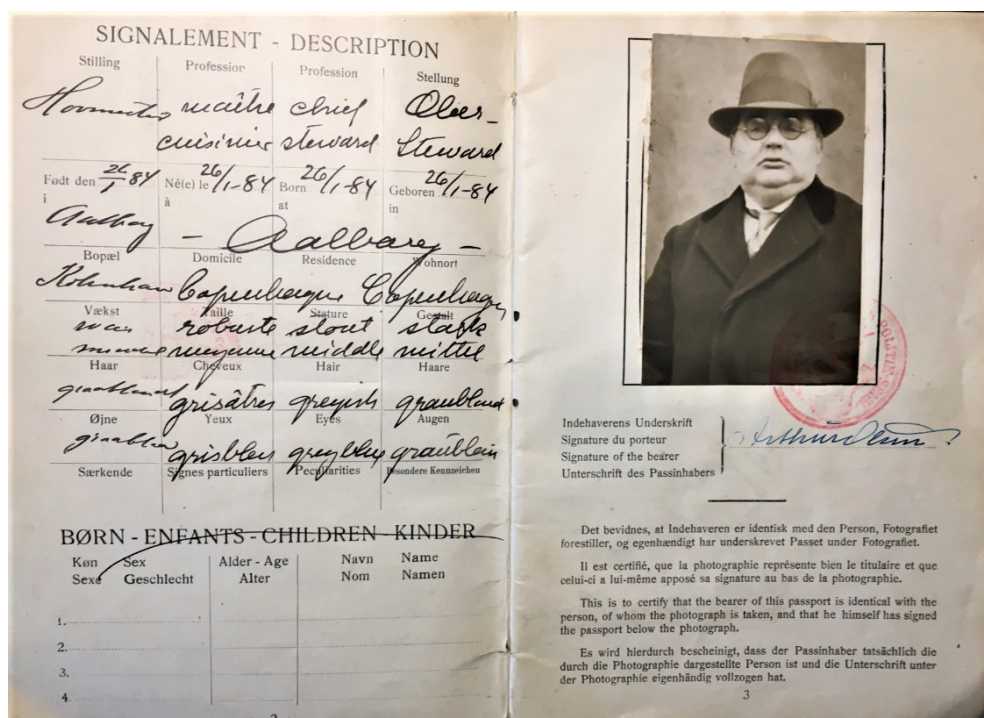 SIGNALEMENT - DESCRIPTION
Stilling Profession Profession Stellung
maître chief Ober-
cuisinier steward Steward
Født den 26/1 84 Né(e) le 26/1-84 Born 26/1-84 Geboren 26/1-84
i à at in
Aalborg - Aalborg -
Bopæl Domicile Residence Wohnort
Copenhague Copenhagen
Vækst Taille Stature Gestalt
robuste stout stark
moyenne middle mittel
Haar Cheveux Hair Haare
graablandt grisâtres greyish graubland
Øjne Yeux Eyes Augen
graablaa grisbleu greyblue graublau
Særkende Signes particuliers Peculiarities Besondere Kennzeichen
BØRN - ENFANTS - CHILDREN - KINDER
Køn Sex Alder - Age Navn Name
Sexe Geschlecht Alter Nom Namen
1.
2.
3.
4.
2
Indehaverens Underskrift
Signature du porteur
Signature of the bearer
Unterschrift des Passinhabers
Arthur Olsen
Det bevidnes, at Indehaveren er identisk med den Person, Fotografiet
forestiller, og egenhændigt har underskrevet Passet under Fotografiet.
Il est certifié, que la photographie représente bien le titulaire et que
celui-ci a lui-même apposé sa signature au bas de la photographie.
This is to certify that the bearer of this passport is identical with the
person, of whom the photograph is taken, and that he himself has signed
the passport below the photograph.
Es wird hierdurch bescheinigt, dass der Passinhaber tatsächlich die
durch die Photographie dargestellte Person ist und die Unterschrift unter
der Photographie eigenhändig vollzogen hat.
3